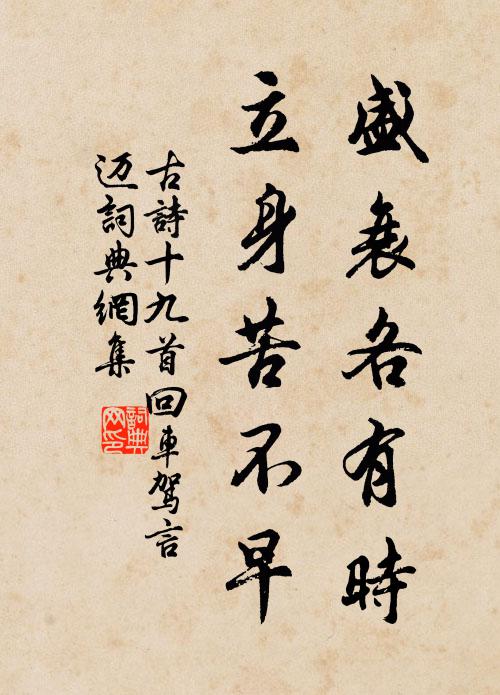 盛衰各有時
立身苦不早
古詩十九首回車駕言
迈詞典網集
詞典网印